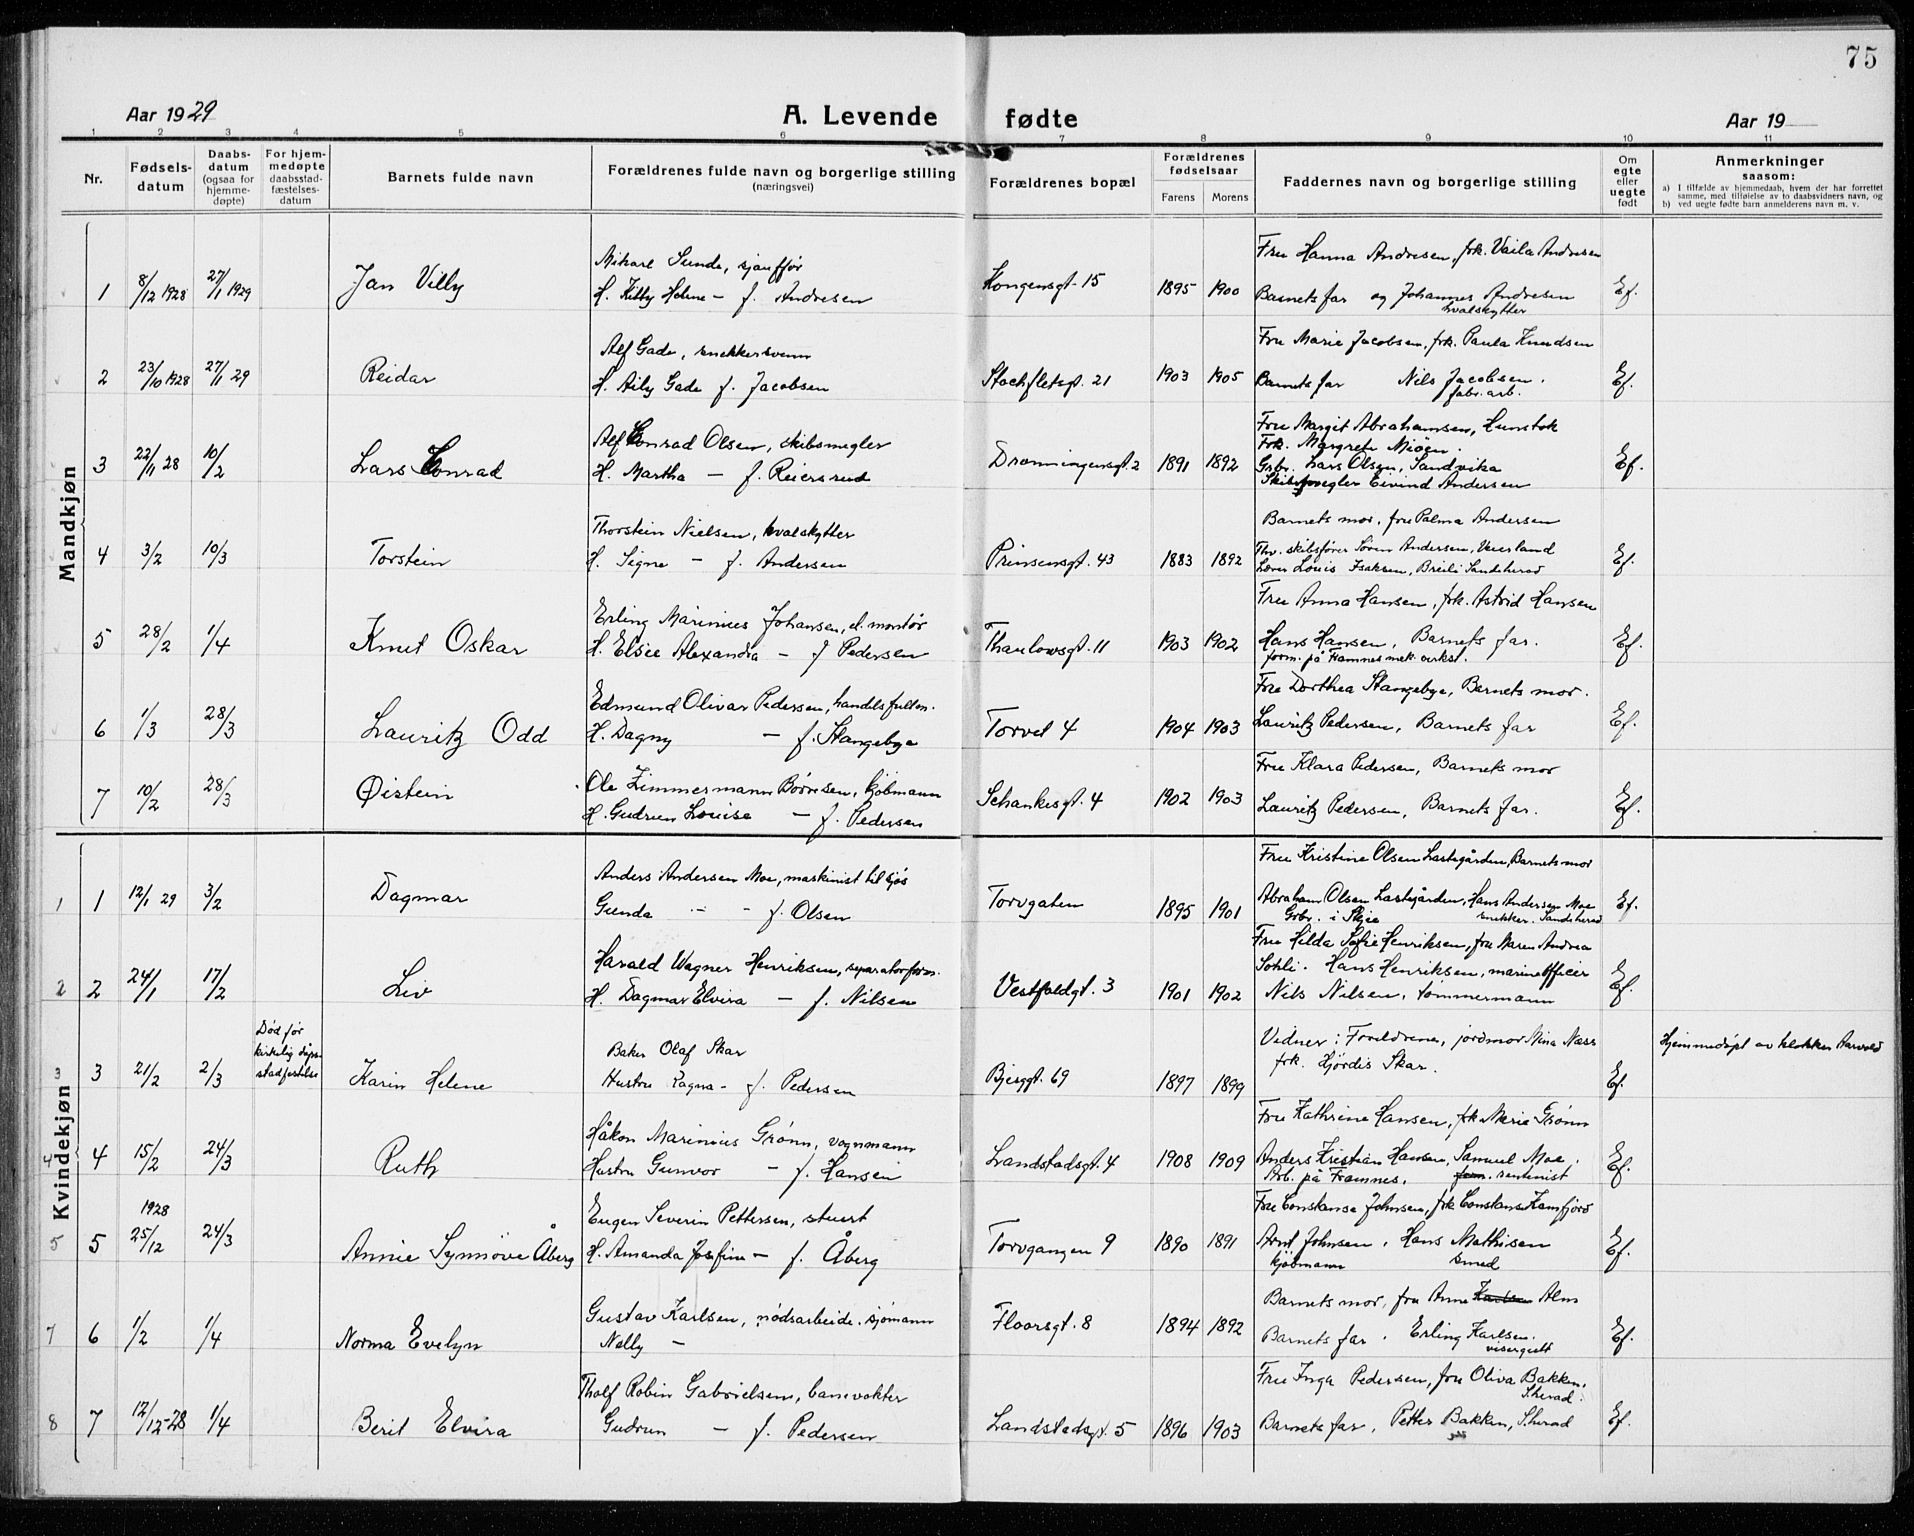 75
Aar 1929
A. Levende fødte
Aar 19
1 2 3 4 5 6 7 8 9 10 11
Nr.
Fødsels-
datum
Daabs-
datum
(ogsaa for
hjemme-
døpte)
For hjem-
medøpte
daabsstad-
fæstelses-
datum
Barnets fulde navn
Forældrenes fulde navn og borgerlige stilling
(næringsvei)
Forældrenes bopæl
Forældrenes
fødselsaar
Farens Morens
Faddernes navn og borgerlige stilling
Om
egte
eller
uegte
født
Anmerkninger
saasom:
a) I tilfælde av hjemmedaab, hvem der har forrettet
samme, med tilføielse av to daabsvidners navn, og
b) ved uegte fødte barn anmelderens navn m. v.
Mandkjøn
1 8/12 1928 27/1 1929 Jan Villy
Mikael Sunde, sjauffør
H. Kitty Helene – f. Andresen
Kongensgt. 15 1895 1900
Fru Hanna Andresen, frk. Vaila Andresen
Barnets far og Johannes Andresen
hvalskytter
Ef.
2 23/10 1928 27/1 29 Reidar
Alf Gade, snekkersvenn
H. Aily Gade f. Jacobsen
Stockfletsgt. 21 1903 1905
Fru Marie Jacobsen, frk. Paula Knudsen
Barnets far Nils Jacobsen.
fabr. arb.
Ef.
3 22/11 28 10/2 Lars Conrad
Alf Conrad Olsen, skibsmegler
H. Martha – f. Reiersrud
Dronningensgt. 2 1891 1892
Fru Margit Abrahamsen, Hunstok
Frk. Margrete Miøen.
Grbr. Lars Olsen, Sandvika
Skibsmegler Eivind Andersen
Ef.
4 3/2 10/3 Torstein
Thorstein Nielsen, hvalskytter
H. Signe – f. Andersen
Prinsensgt. 43 1883 1892
Barnets mor, fru Palma Andersen
Thv. skibsfører Søren Andersen, Veierland
Lærer Louis Isaksen, Breili Sandeherad
Ef.
5 28/2 1/4 Knut Oskar
Erling Marinius Johansen, el. montør
H. Elsie Alexandra – f Pedersen
Thaulowsgt. 11 1903 1902
Fru Anna Hansen, frk. Astrid Hansen
Hans Hansen, Barnets far.
form. på Framnes mek. verkst.
Ef.
6 1/3 28/3 Lauritz Odd
Edmund Olivar Pedersen, handelsfullm.
H. Dagny – f. Stangebye
Torvet 4 1904 1903
Fru Dorthea Stangebye, Barnets mor.
Lauritz Pedersen, Barnets far
Ef.
7 10/2 28/3 Øistein
Ole Zimmermann Børresen, kjøbmann
H. Gudrun Louise – f. Pedersen
Schankesgt. 4 1902 1903
Fru Klara Pedersen, Barnets mor
Lauritz Pedersen, Barnets far.
Ef.
Kvindekjøn
1 1 12/1 29 3/2 Dagmar
Anders Andersen Moe, maskinist til sjøs
Gunda – – f. Olsen
Torvgaten 1895 1901
Fru Kristine Olsen Lastegården, Barnets mor
Abraham Olsen Lastegården, Hans Andersen Moe
Grbr. i Skjee snekker. Sandeherad
Ef.
2 2 24/1 17/2 Liv
Harald Wagner Henriksen, separatorform.
H. Dagmar Elvira – f. Nilsen
Vestfoldgt. 3 1901 1902
Fru Hilda Sofie Henriksen, fru Maren Andrea
Sohli. Hans Henriksen, marineofficer
Nils Nilsen, tømmermann
Ef.
3 3 21/2 2/3
Død før
kirkelig dåps-
stadfestelse
Karin Helene
Baker Olaf Skar
Hustru Ragna – f. Pedersen
Bjerggt. 69 1897 1899
Vidner: Foreldrene, jordmor Mina Næss
frk. Hjørdis Skar.
Ef.
Hjemmedøpt av klokker Aarvold
4 4 15/2 24/3 Ruth
Håkon Marinius Grønn, vognmann
Hustru Gunvor – f. Hansen
Landstadsgt. 4 1908 1909
Fru Kathrine Hansen, frk Marie Grønn
Anders Kristian Hansen, Samuel Moe.
Arb. på Framnes. form. rentenist
Ef.
5 5 1928 25/12 24/3 Annie Synnöve Åberg
Eugen Severin Pettersen, stuert
H. Amanda Josefine – f. Åberg
Torvgangen 9 1890 1891
Fru Constanse Johnsen, frk Constanse Kamfjord
Arnt Johnsen, Hans Mathisen
kjøbmann smed
Ef.
7 6 1/2 1/4 Norma Evelyn
Gustav Karlsen, nødsarbeide. sjømann
Nelly –
Floorsgt. 8 1894 1892
Barnets mor, fru Anne Karlsen Alm
Barnets far. Erling Karlsen.
visergutt
Ef.
8 7 12/12-28 1/4 Berit Elvira
Tholf Robin Gabrielsen, banevokter
Gudrun – f. Pedersen
Landstadsgt. 5 1896 1903
Fru Inga Pedersen, fru Oliva Bakken,
S.herad.
Barnets far, Petter Bakken, S.herad
Ef.